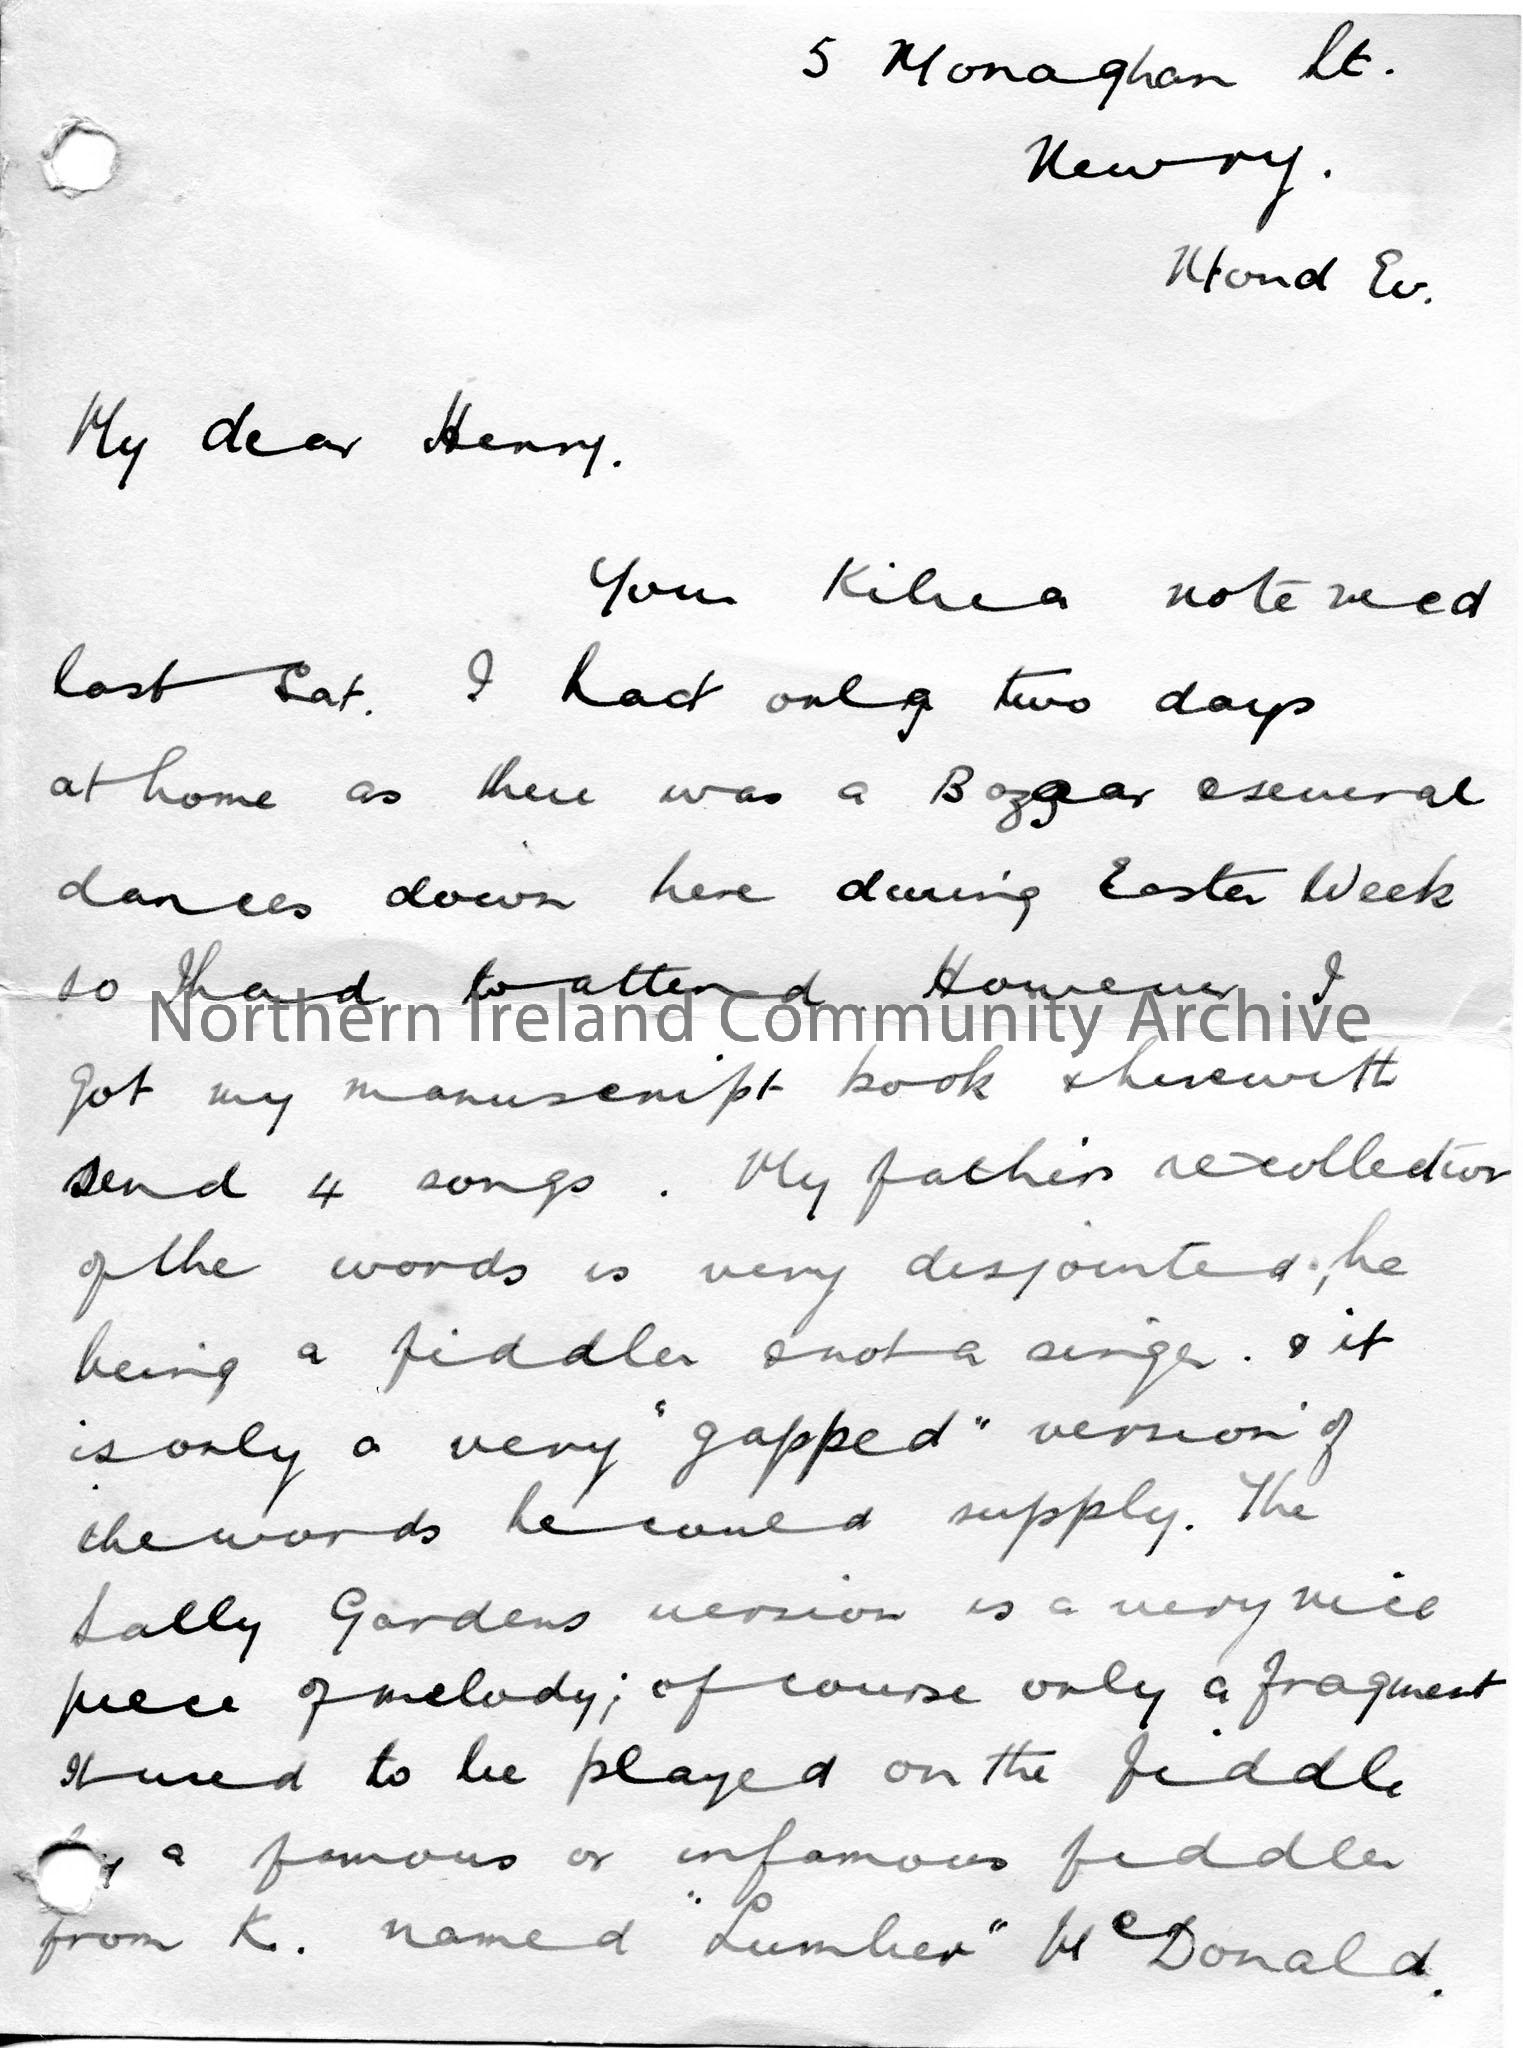 5 Monaghan St.
Newry.
Mond Ev.
My dear Henry.
Your Kilrea note recd
last Sat. I had only two days
at home as there was a Bazaar & several
dances down here during Easter Week
so I had to attend However I
Northern Ireland Community Archive
got my manuscript book & herewith
send 4 songs. My father's recollection
of the words is very disjointed; he
being a fiddler & not a singer. & it
is only a very "gapped" version of
the words he could supply. The
Sally Gardens version is a very nice
piece of melody; of course only a fragment
It used to be played on the fiddle
by a famous or infamous fiddler
from K. named "Lumber" McDonald.